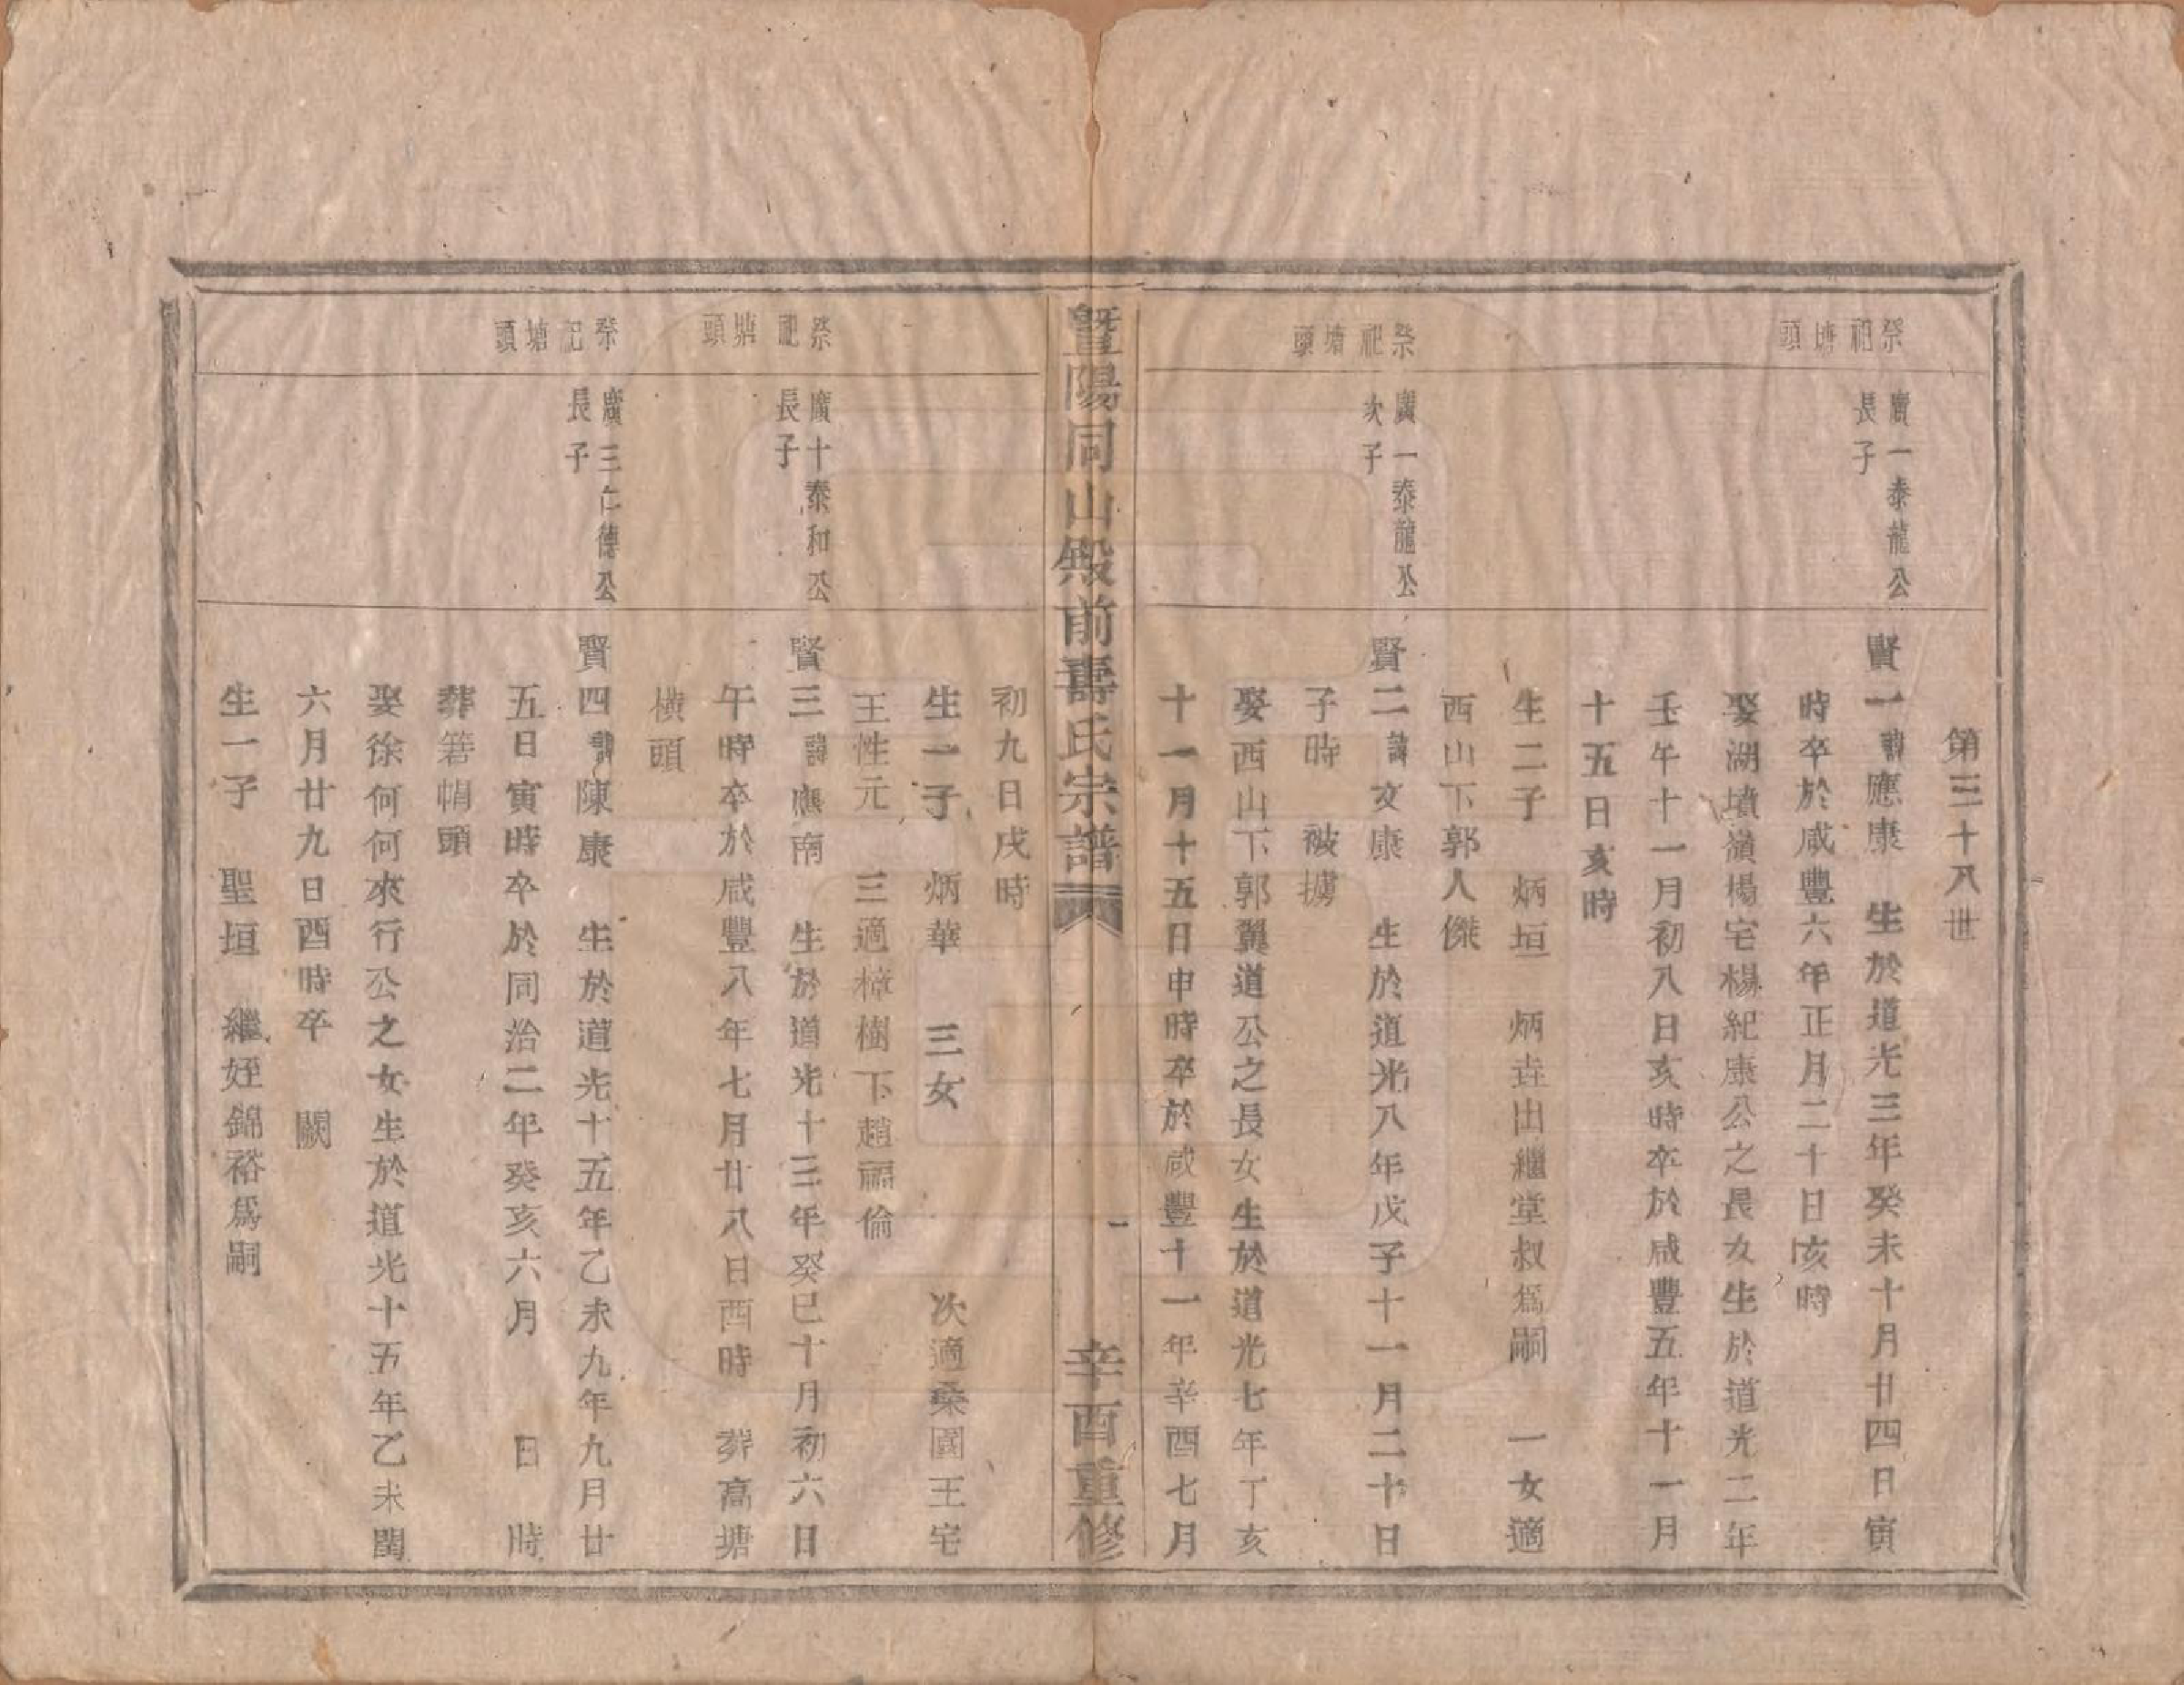 第三十八世
祭祀塘頭
廣一泰龍公
長子
賢一諱應康 生於道光三年癸未十月廿四日寅
時卒於咸豐六年正月二十日亥時
娶湖墳嶺楊宅楊紀康公之長女生於道光二年
壬午十一月初八日亥時卒於咸豐五年十一月
十五日亥時
生二子 炳垣 炳垚出繼堂叔爲嗣 一女適
西山下郭人傑
祭祀塘頭
廣一泰龍公
次子
賢二諱文康 生於道光八年戊子十一月二十日
子時 被擄
娶西山下郭翼道公之長女生於道光七年丁亥
十一月十五日申時卒於咸豐十一年辛酉七月
暨陽同山殿前壽氏宗譜 一 辛酉重修
初九日戌時
生一子 炳華 三女 次適桑園王宅
王性元 三適樟樹下趙福倫
祭祀塘頭
廣十泰和公
長子
賢三諱應南 生於道光十三年癸巳十月初六日
午時卒於咸豐八年七月廿八日酉時 葬高塘
橫頭
祭祀塘頭
廣三仁德公
長子
賢四諱陳康 生於道光十五年乙未九年九月廿
五日寅時卒於同治二年癸亥六月 日 時
葬箬帽頭
娶徐何何來行公之女生於道光十五年乙未閏
六月廿九日酉時卒 闕
生一子 聖垣 繼姪錦裕爲嗣